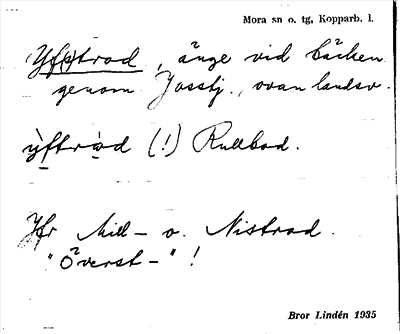 Mora sn o. tg, Kopparb. l.
Yf(s)trad, änge vid bäcken
genom Josstj., ovan landsv.
ỳftràd (!) Rullbod.
Jfr Mill- o. Nistrad.
"Överst-"!
Bror Lindén 1935